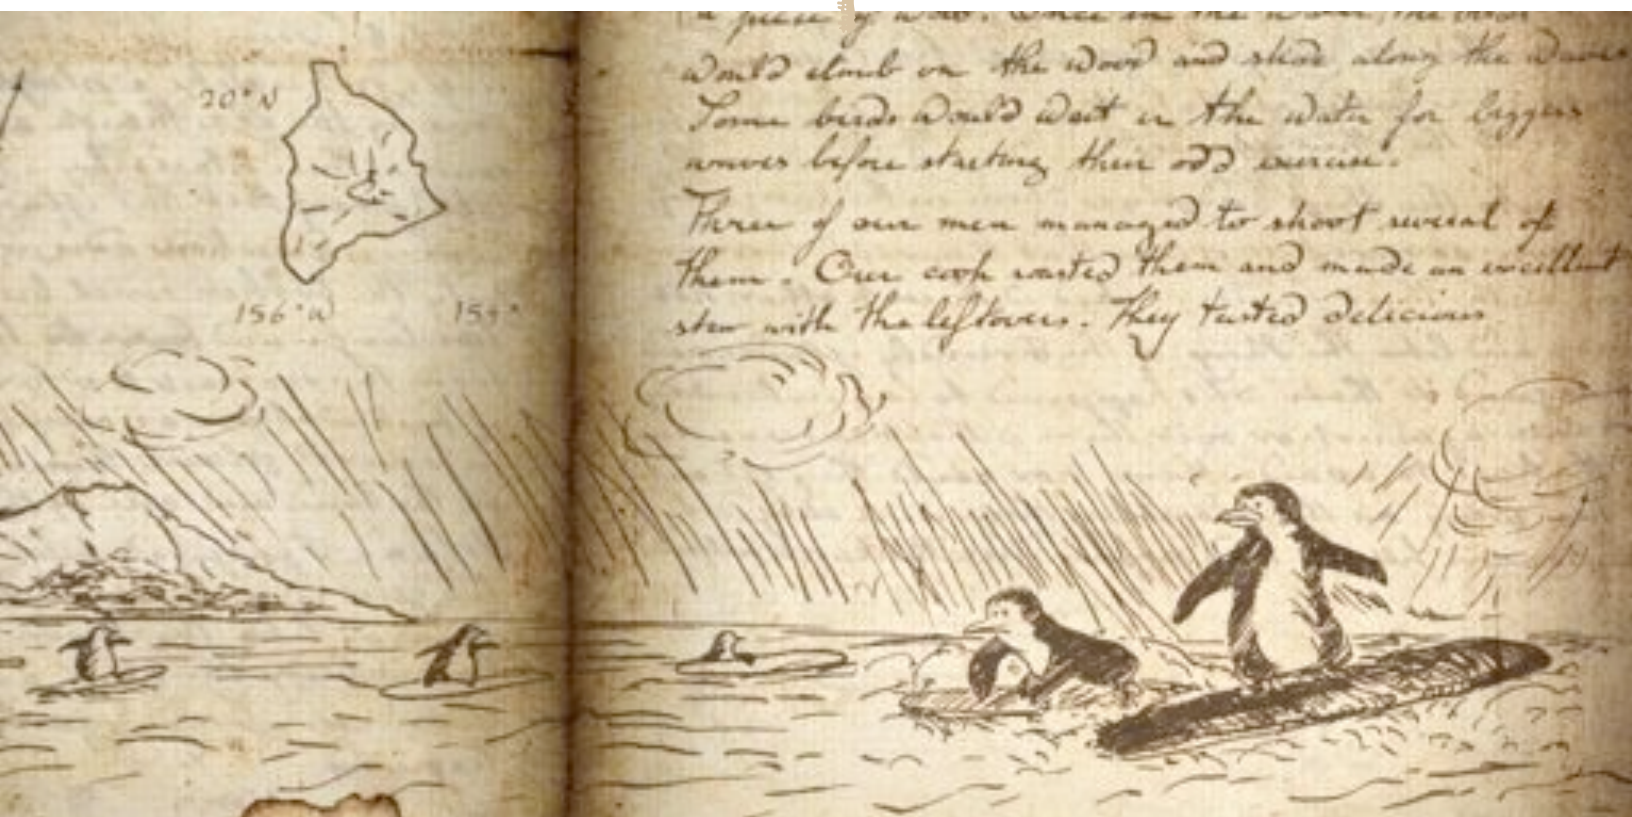 20° N
156° W
a piece of wood. Once in the water, the birds
would climb on the wood and slide along the waves
Some birds would wait in the water for bigger
waves before starting their odd exercise.
Three of our men managed to shoot several of
them. Our cook roasted them and made an excellent
stew with the leftovers. They tasted delicious